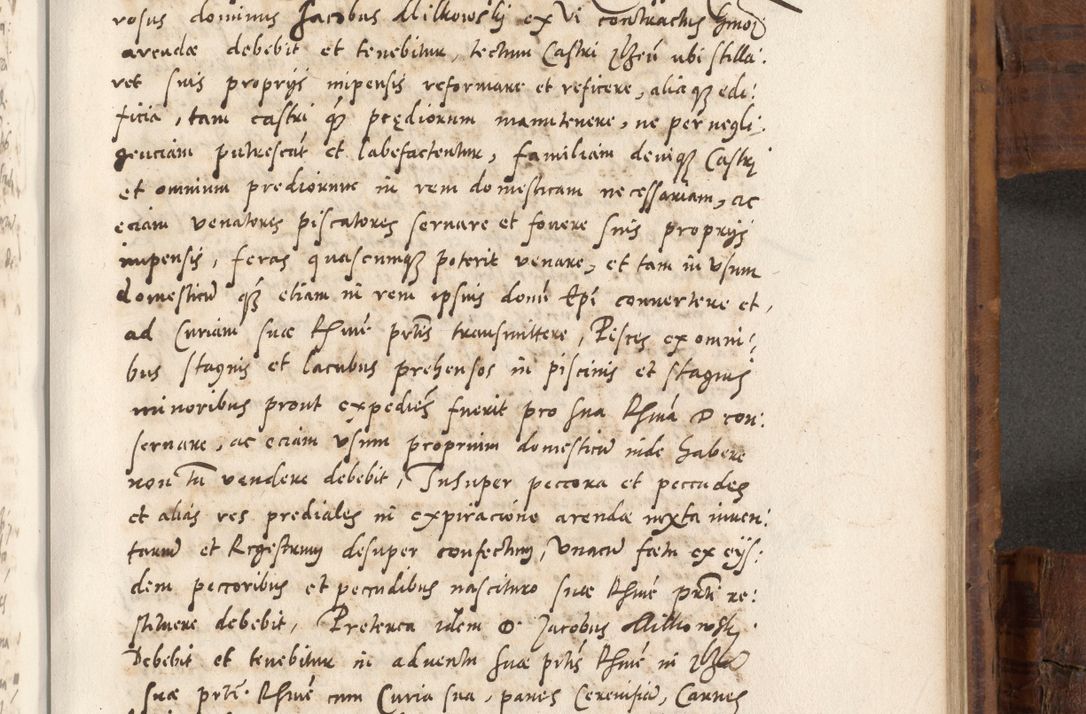 rosus dominus Jacobus Milkowskj ex vi contractus hmoj
arendæ debebit et tenebitur, tectum Castri ubi stilla:
ret suis proprijs inpensis reformare et reficere, alia qȝ edi:
ficia, tam castri qȝ prędiorum manutenere, ne per negli,
genciam putrescāt et labefactentur, familiam deniqȝ Castrj
et omnium prediorum in rem domesticam necessariam, ac
eciam venatores piscatores seruare et fouere suis proprijs
inpensis, feras quascumqȝ poterit venare, et tam in vsum
domesticū qȝ etiam in rem ipsius domī Epī conuertere et,
ad Curiam suæ Rhmē prtīs transmittere, Pisces ex omni:
bus stagnis et lacubus prehensos in piscinis et stagnis
minoribus prout expediēs fuerit pro sua Rhmā D con:
seruare, ac eciam vsum proprium domesticū inde habere
non tn̄ vendere debebit, Insuper peccora et peccudes
et alias res prediales in expiracione arendæ iuxta inuen:
tariū et Regestrum desuper confectum, vnacū fœtu ex eijs:
dem peccoribus et pecudibus nascituro suæ Rhmē prtī re:
stituere debebit, Preterea idem D. Jacobus Milkowskj.
Debebit et tenebitur in aduentu suæ prtīs Rhmē in
suæ prtē. Rhmē cum Curia sua, panes Cereuisiā, Carnes